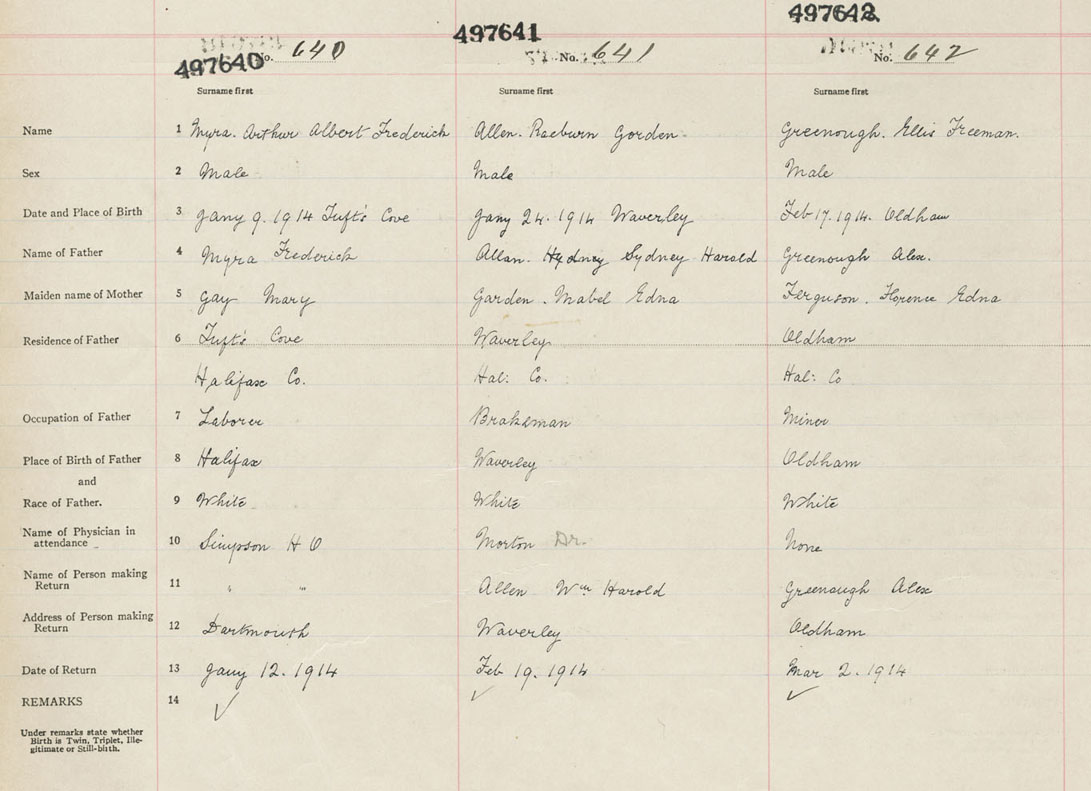 497640 497641 497642
No. 640 No. 641 No. 642
Surname first Surname first Surname first
Name 1 Myra. Arthur Albert Frederick Allen. Raeburn Gorden. Greenough. Ellis Freeman.
Sex 2 Male Male Male
Date and Place of Birth 3 Jany 9. 1914 Tuft's Cove Jany 24. 1914 Waverley Feb 17. 1914. Oldham
Name of Father 4 Myra Frederick Allan. Sydney Harold Greenough Alex.
Maiden name of Mother 5 Gay Mary Garden. Mabel Edna Ferguson. Florence Edna
Residence of Father 6 Tuft's Cove Waverley Oldham
Halifax Co. Hal: Co. Hal: Co
Occupation of Father 7 Laborer Brakeman Miner
Place of Birth of Father 8 Halifax Waverley Oldham
and
Race of Father. 9 White White White
Name of Physician in
attendance 10 Simpson H O Morton Dr. None
Name of Person making
Return 11 " " Allen Wm Harold Greenough Alex
Address of Person making
Return 12 Dartmouth Waverley Oldham
Date of Return 13 Jany 12. 1914 Feb 19. 1914 Mar 2. 1914
REMARKS 14 ✓ ✓ ✓
Under remarks state whether
Birth is Twin, Triplet, Ille-
gitimate or Still-birth.